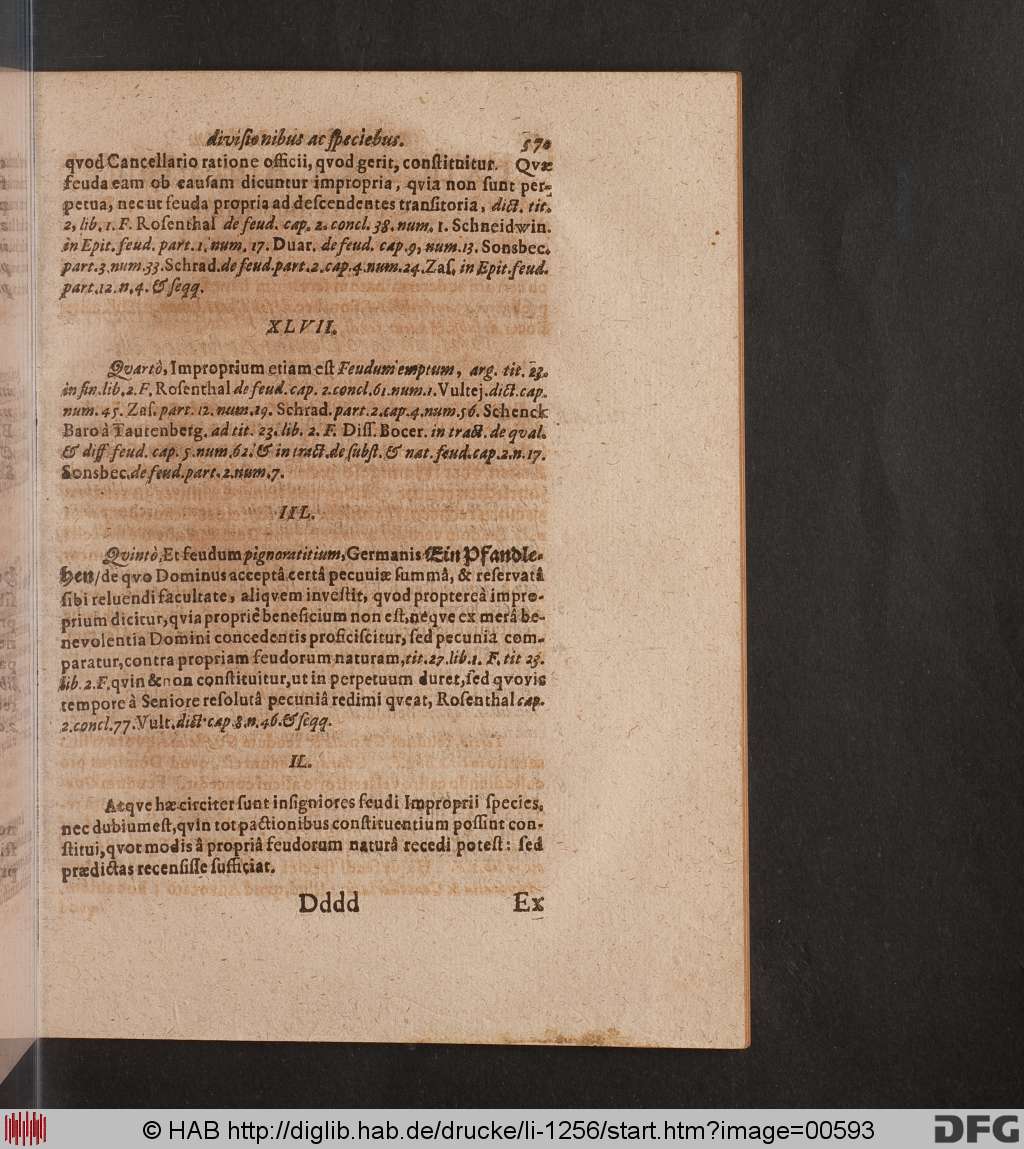 divisionibus ac speciebus. 570
qvod Cancellario ratione officii, qvod gerit, constituitur. Qvæ
feuda eam ob causam dicuntur impropria, qvia non sunt per-
petua, nec ut feuda propria ad descendentes transitoria, dict. tit.
2, lib. 1. F. Rosenthal de feud. cap. 2. concl. 38. num. 1. Schneidwin.
in Epit. feud. part. 1. num. 17. Duar. de feud. cap. 9, num. 13. Sonsbec.
part. 3. num. 33. Schrad. de feud. part. 2. cap. 4. num. 24. Zas. in Epit. feud.
part. 12. n. 4. & seqq.
XLVII.
Qvartò, Improprium etiam est Feudum emptum, arg. tit. 23.
in fin. lib. 2. F. Rosenthal de feud. cap. 2. concl. 61. num. 1. Vultej. dict. cap.
num. 45. Zas. part. 12. num. 19. Schrad. part. 2. cap. 4. num. 56. Schenck
Baro à Tautenberg. ad tit. 23. lib. 2. F. Diss. Bocer. in tract. de qval.
& diff feud. cap. 5. num. 62. & in tract. de subst. & nat. feud. cap. 2. n. 17.
Sonsbec. de feud. part. 2. num. 7.
IIL.
Qvintò, Et feudum pignoratitium, Germanis Ein Pfandle-
hen/ de qvo Dominus acceptâ certâ pecuniæ summâ, & reservatâ
sibi reluendi facultate, aliqvem investit, qvod proptereà impro-
prium dicitur, qvia propriè beneficium non est, neqve ex merâ be-
nevolentia Domini concedentis proficiscitur, sed pecuniâ com-
paratur, contra propriam feudorum naturam, tit. 27. lib. 1. F. tit 23.
lib. 2. F. qvin & non constituitur, ut in perpetuum duret, sed qvovis
tempore à Seniore resolutâ pecuniâ redimi qveat, Rosenthal cap.
2. concl. 77. Vult. dict. cap 8. n. 46. & seqq.
IL.
Atqve hæ circiter sunt insigniores feudi Improprii species,
nec dubium est, qvin tot pactionibus constituentium possint con-
stitui, qvot modis â propriâ feudorum naturâ recedi potest: sed
prædictas recensisse sufficiat.
Dddd Ex
© HAB http://diglib.hab.de/drucke/li-1256/start.htm?image=00593
DFG